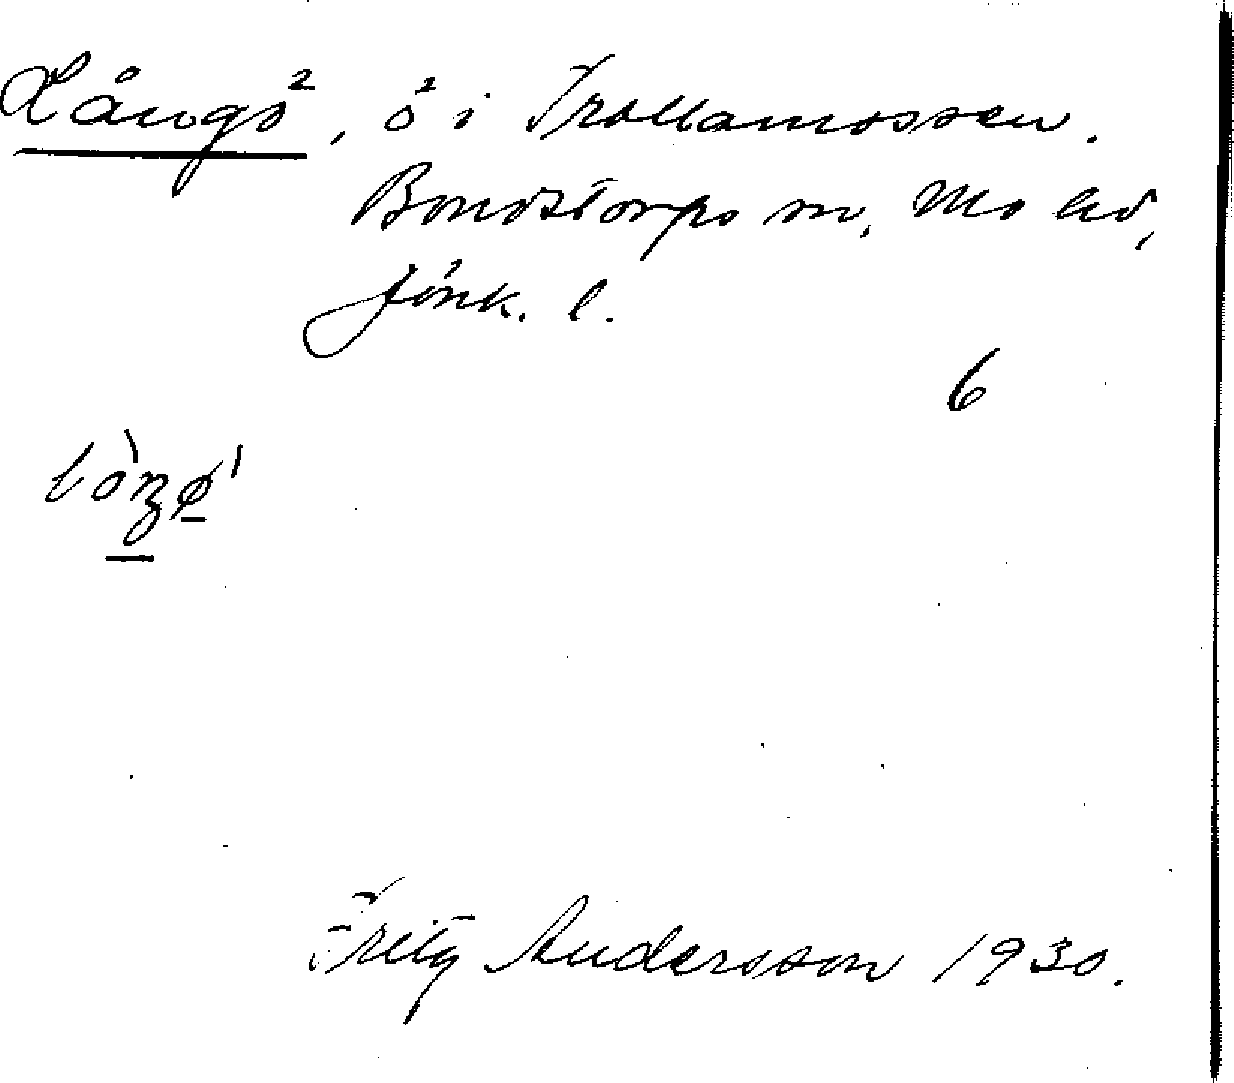 Långö, ö i Trollamossen.
Bondstorps sn, Mo hd,
Jönk. l.
6
Fritz Andersson 1930.